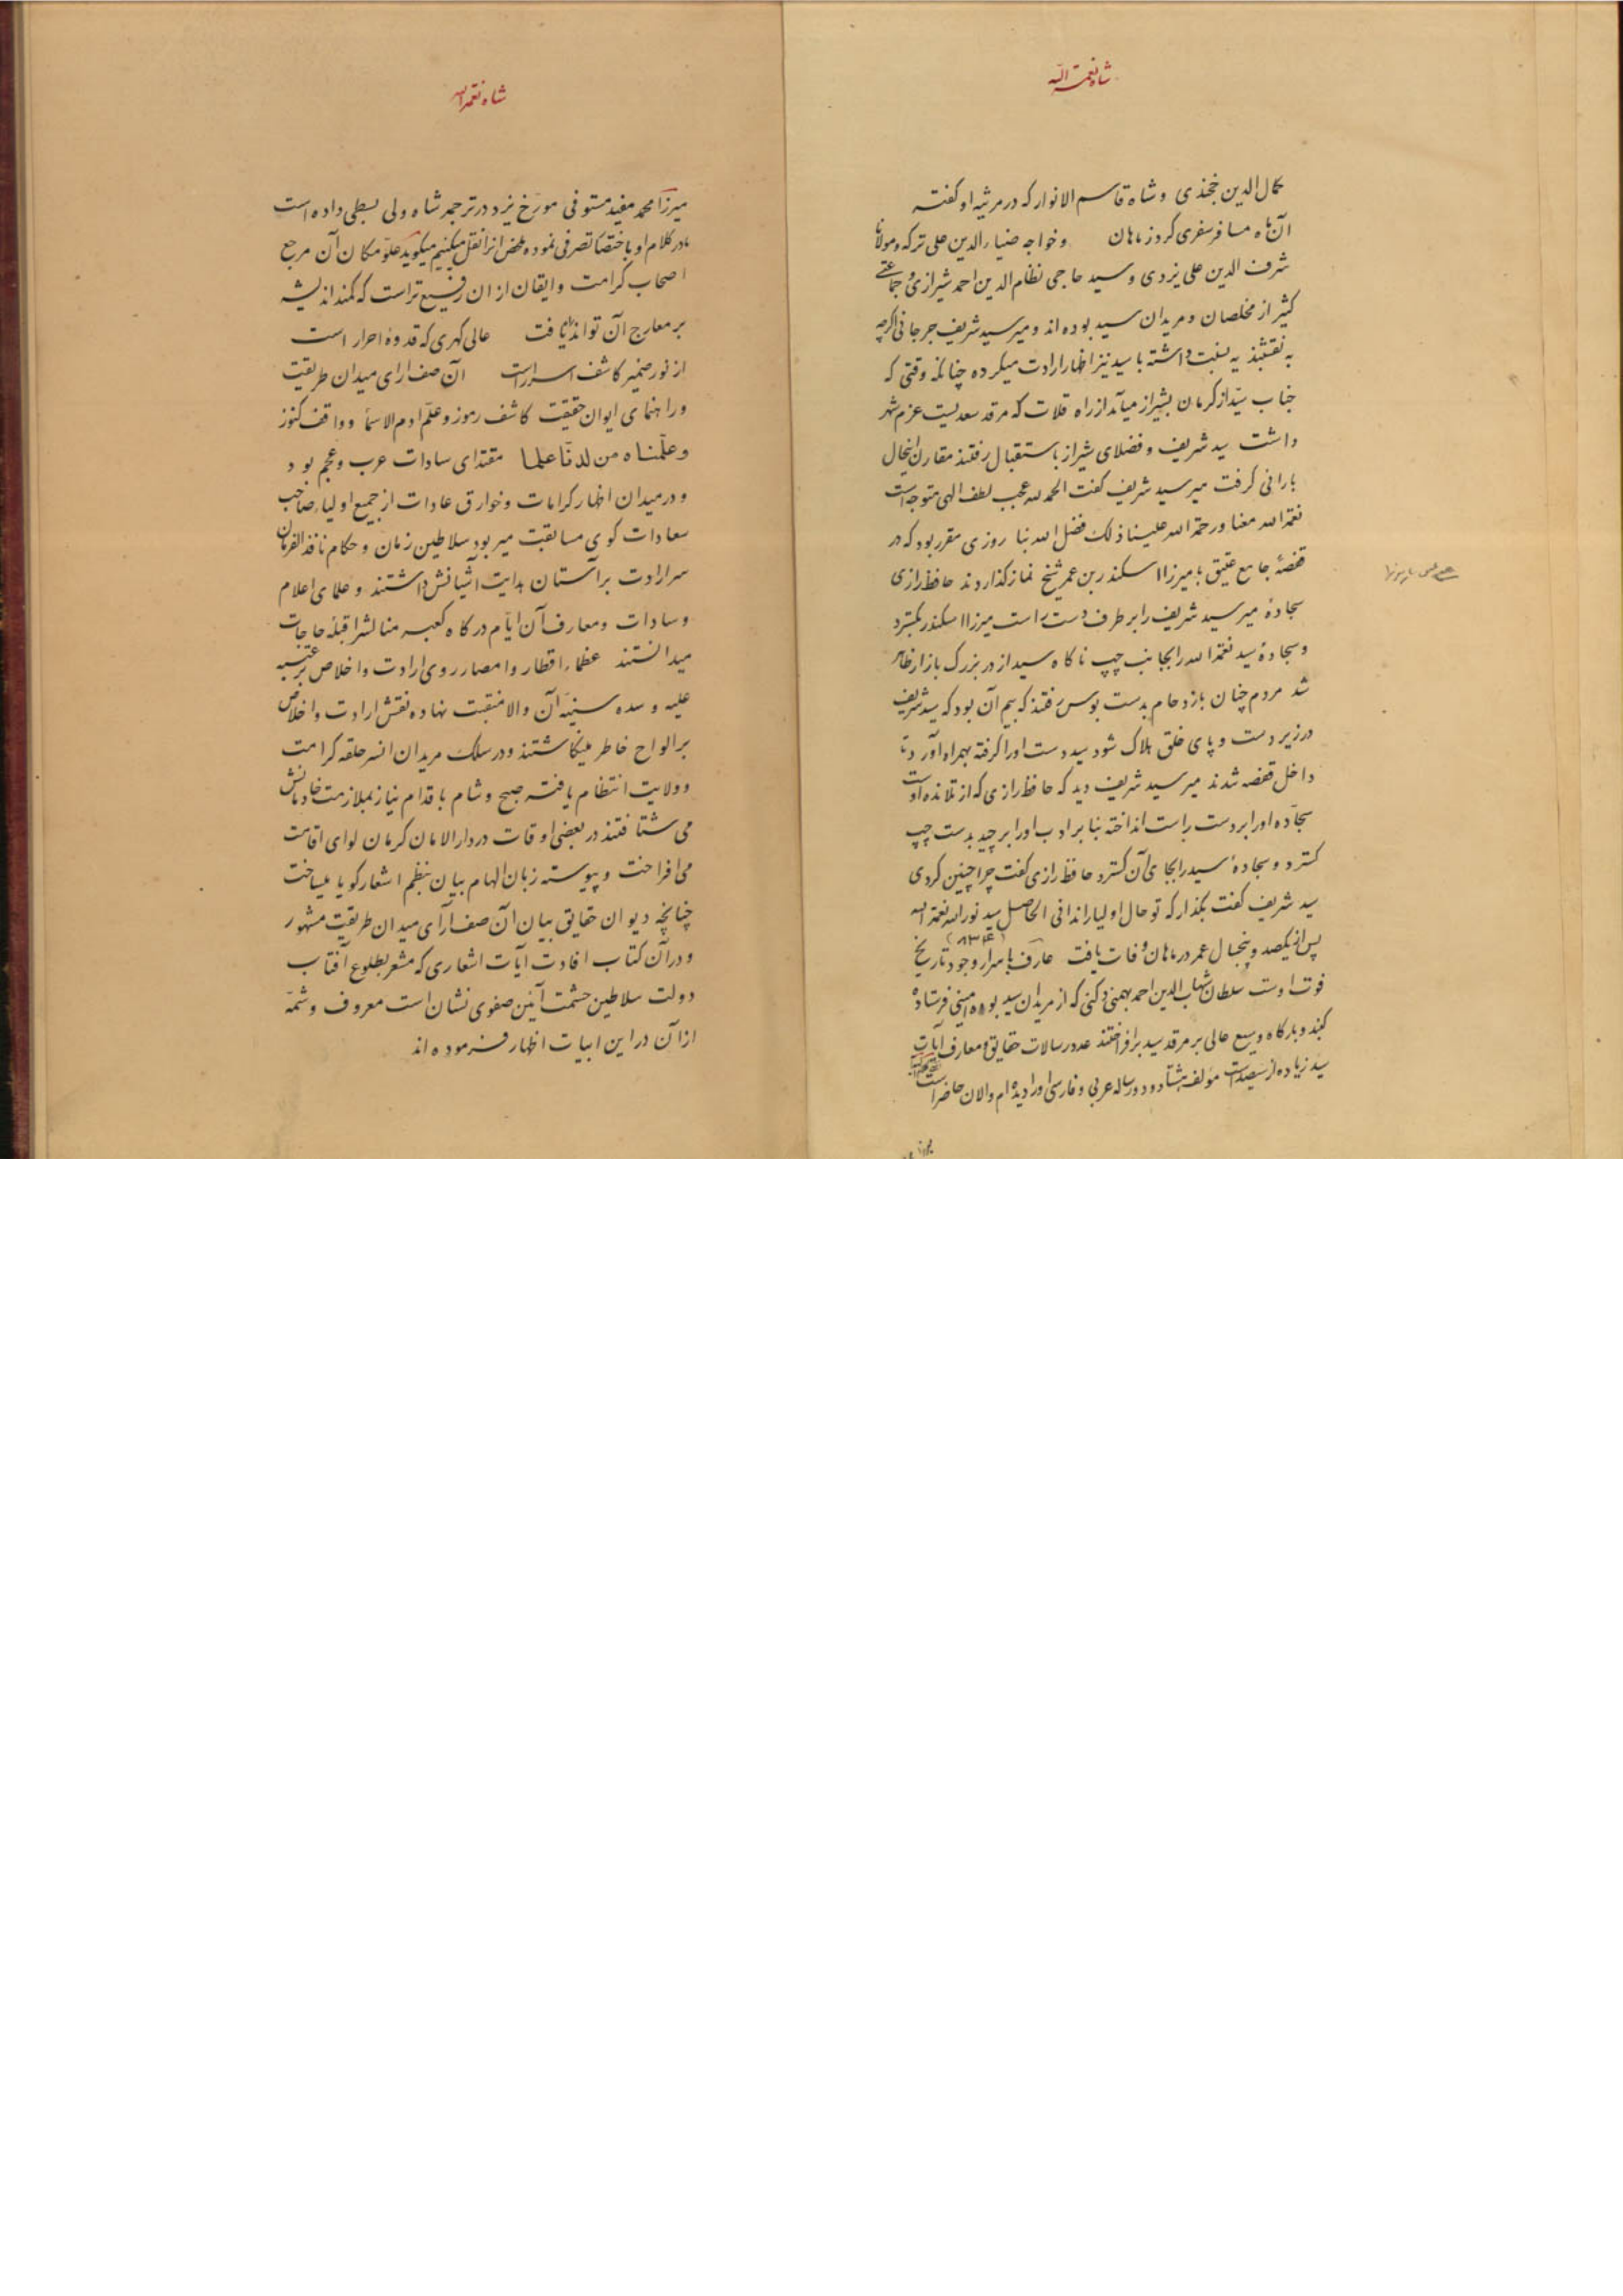 شاه نعمة الله
کمال الدین خجندی و شاه قاسم الانوار که در مرثیه او گفته
آن ماه مسافر سفری کرد ز ماهان و خواجه ضیاء الدین علی ترکه و مولانا
شرف الدین علی یزدی و سید حاجی نظام الدین احمد شیرازی و جماعتی
کثیر از مخلصان و مریدان سید بوده اند و میر سید شریف جرجانی اگرچه
به نقشبندیه نسبت داشته با سید نیز اظهار ارادت میکرده چنانکه وقتی که
جناب سید از کرمان بشیراز میآمد از راه قلات که مرقد سعدیست عزم شهر
داشت سید شریف و فضلای شیراز باستقبال رفتند مقارن اینحال
بارانی گرفت میر سید شریف گفت الحمد لله عجب لطف الهی متوجه است
نعمة الله معنا و رحمة الله علینا ذلک فضل الله بنا روزی مقرر بود که در
قفصهٔ جامع عتیق با میرزا اسکندر بن عمر شیخ نماز گذاردند حافظ رازی
سجادهٔ میر سید شریف را بر طرف دست راست میرزا اسکندر بگسترد
و سجادهٔ سید نعمة الله را بجانب چپ ناگاه سید از در بزرگ بازار ظاهر
شد مردم چنان بازدحام بدست بوس رفتند که بیم آن بود که سید شریف
در زیر دست و پای خلق هلاک شود سید دست او را گرفته بهمراه آورد تا
داخل قفصه شدند میر سید شریف دید که حافظ رازی که از تلامذه اوست
سجّاده او را بر دست راست انداخته بنا بر ادب او را برچید بدست چپ
گسترد و سجادهٔ سید را بجای آن گسترد حافظ رازی گفت چرا چنین کردی
سید شریف گفت بگذار که تو حال اولیا را ندانی الحاصل سید نور الله نعمة الله
پس از یکصد و پنجسال عمر در ماهان وفات یافت (۸۳۴) عارف باسرار وجود تاریخ
فوت اوست سلطان شهاب الدین احمد بهمنی دکنی که از مریدان سید بوده مبنی فرستاده
گنبد و بارگاه وسیع عالی بر مرقد سید برافراختند عدد رسالات حقایق و معارف آیات
سید زیاده از سیصد است مؤلف هشتاد و دو رساله عربی و فارسی او را دیده ام و الان حاضر است
شاه نعمة الله
میرزا محمد مفید مستوفی مورّخ یزد در ترجمه شاه ولی بسطی داده است
ما در کلام او باختصار تصرفی نموده ملخص آنرا نقل میکنیم میگوید علوّ مکان آن مرجع
اصحاب کرامت و ایقان از ان رفیع تر است که کمند اندیشه
بر معارج آن تواند یافت عالی گهری که قدوهٔ احرار است
از نور ضمیر کاشف اسرار است آن صف ارای میدان طریقت
و راهنمای ایوان حقیقت کاشف رموز و علّم ادم الاسما و واقف کنوز
و علّمناه من لدنّا علما مقتدای سادات عرب و عجم بود
و در میدان اظهار کرامات و خوارق عادات از جمیع اولیاء صاحب
سعادات گوی مسابقت میربود سلاطین زمان و حکام نافذ الفرمان
سر ارادت بر آستان هدایت آشیانش داشتند و علمای اعلام
و سادات و معارف آن ایّام درگاه کعبه منالش را قبلهٔ حاجات
میدانستند عظماء اقطار و امصار روی ارادت و اخلاص بر عتبه
علیه و سده سنیّه آن والا منقبت نهاده نقش ارادت و اخلاص
بر الواح خاطر مینگاشتند و در سلک مریدان انسر حلقه کرامت
و ولایت انتظام یافته صبح و شام باقدام نیاز بملازمت خادمانش
می شتافتند در بعضی اوقات در دار الامان کرمان لوای اقامت
می افراخت و پیوسته زبان الهام بیان بنظم اشعار گویا میساخت
چنانچه دیوان حقایق بیان آن صف آرای میدان طریقت مشهور
و در آن کتاب افادت آیات اشعاری که مشعر بطلوع آفتاب
دولت سلاطین حشمت آئین صفوی نشان است معروف و شمّه
از آن در این ابیات اظهار فرموده اند